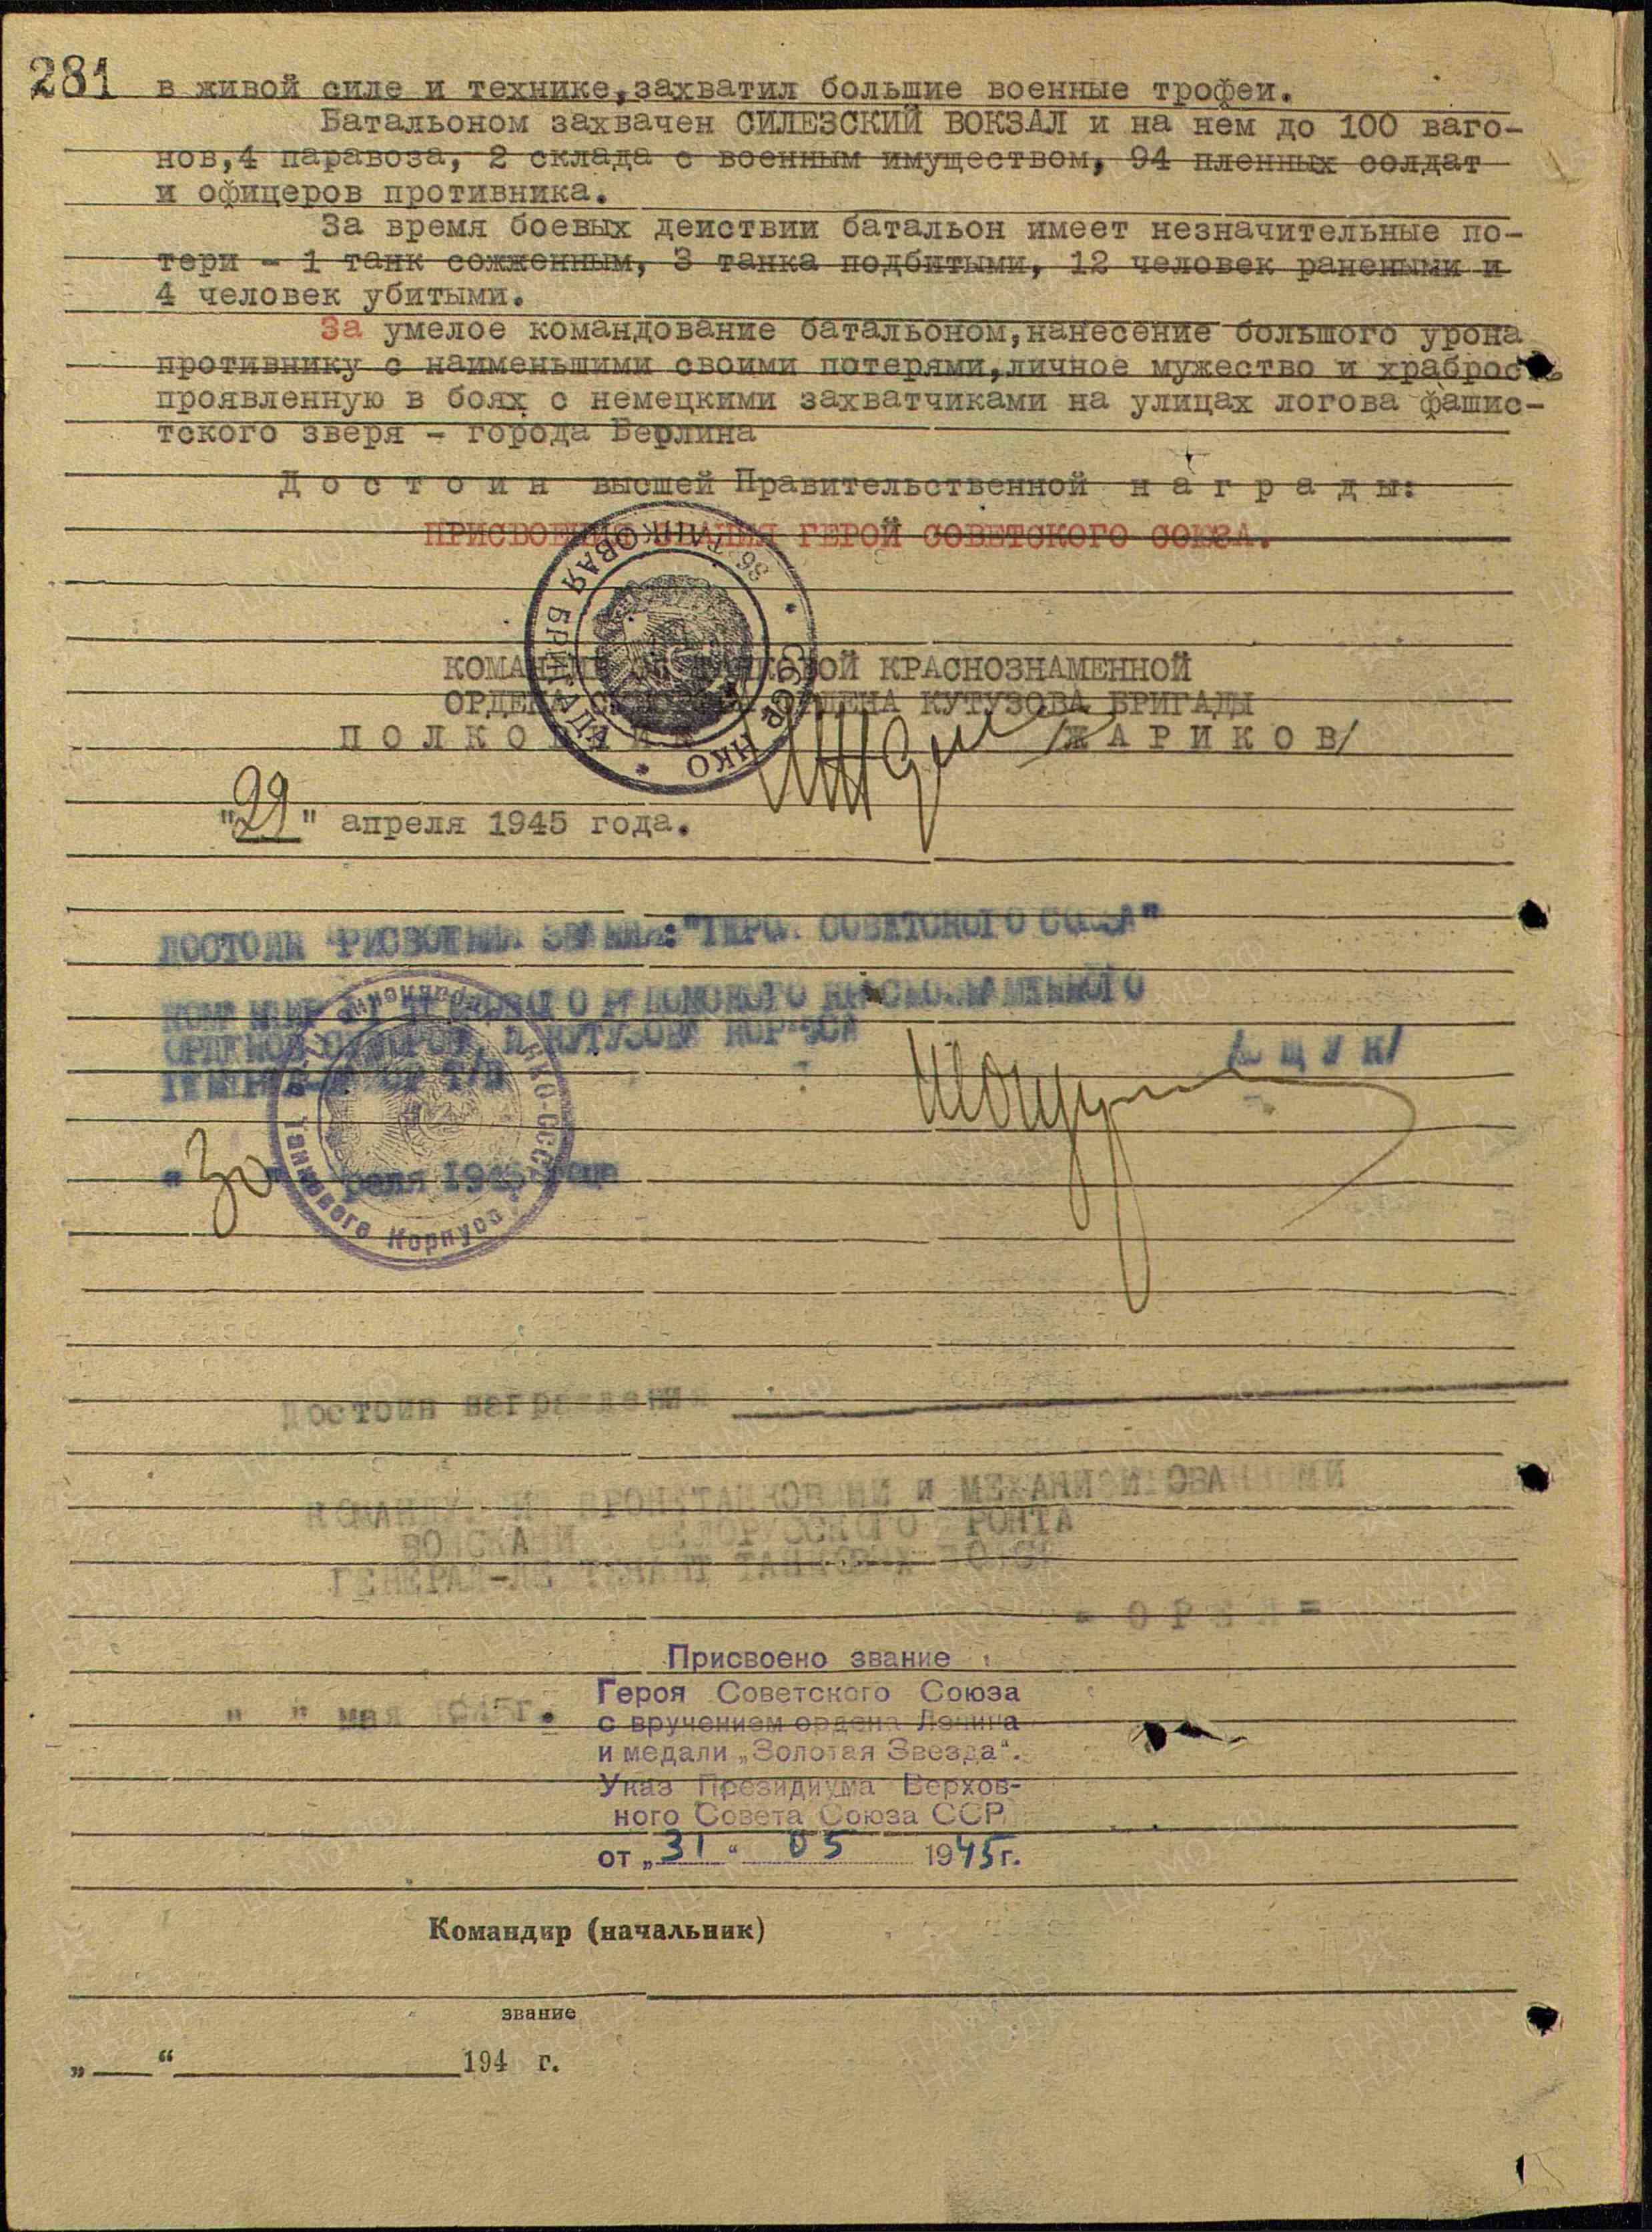 281
в живой силе и технике, захватил большие военные трофеи.
Батальоном захвачен СИЛЕЗСКИЙ ВОКЗАЛ и на нем до 100 ваго-
нов,4 паравоза, 2 склада с военным имуществом, 94 пленных солдат
и офицеров противника.
За время боевых действии батальон имеет незначительные по-
тери - 1 танк сожженным, 3 танка подбитыми, 12 человек ранеными и
4 человек убитыми.
За умелое командование батальоном,нанесение большого урона
противнику с наименьшими своими потерями,личное мужество и храброс
проявленную в боях с немецкими захватчиками на улицах логова фашис-
тского зверя - города Берлина
Д о с т о и н высшей Правительственной н а г р а д ы:
ПРИСВОЕНИЯ ЗВАНИЯ ГЕРОЙ СОВЕТСКОГО СОЮЗА.
ТАНКОВАЯ БРИГАДА * НКО СССР *
КРАСНОЗНАМЕННОЙ
ОРДЕНА КУТУЗОВА БРИГАДЫ
П О Л К О В Н И К /Ж А Р И К О В/
"29" апреля 1945 года.
ДОСТОИН ПРИСВОЕНИЯ ЗВАНИЯ:"ГЕРОЙ СОВЕТСКОГО СОЮЗА"
КРАСНОЗНАМЕННОГО
И КУТУЗОВА КОРПУСА
Танкового Корпуса НКО-СССР
"30" апреля 1945 года
Достоин награждения
БРОНЕТАНКОВЫМИ И МЕХАНИЗИРОВАННЫМИ
ВОЙСКАМИ БЕЛОРУССКОГО ФРОНТА
ГЕНЕРАЛ-ЛЕЙТЕНАНТ ТАНКОВЫХ ВОЙСК
- О Р Е Л -
" " мая 1945г.
Присвоено звание
Героя Советского Союза
с вручением ордена Ленина
и медали „Золотая Звезда".
Указ Президиума Верхов-
ного Совета Союза ССР
от „31" 05 1945г.
Командир (начальник)
звание
„ “ 194 г.